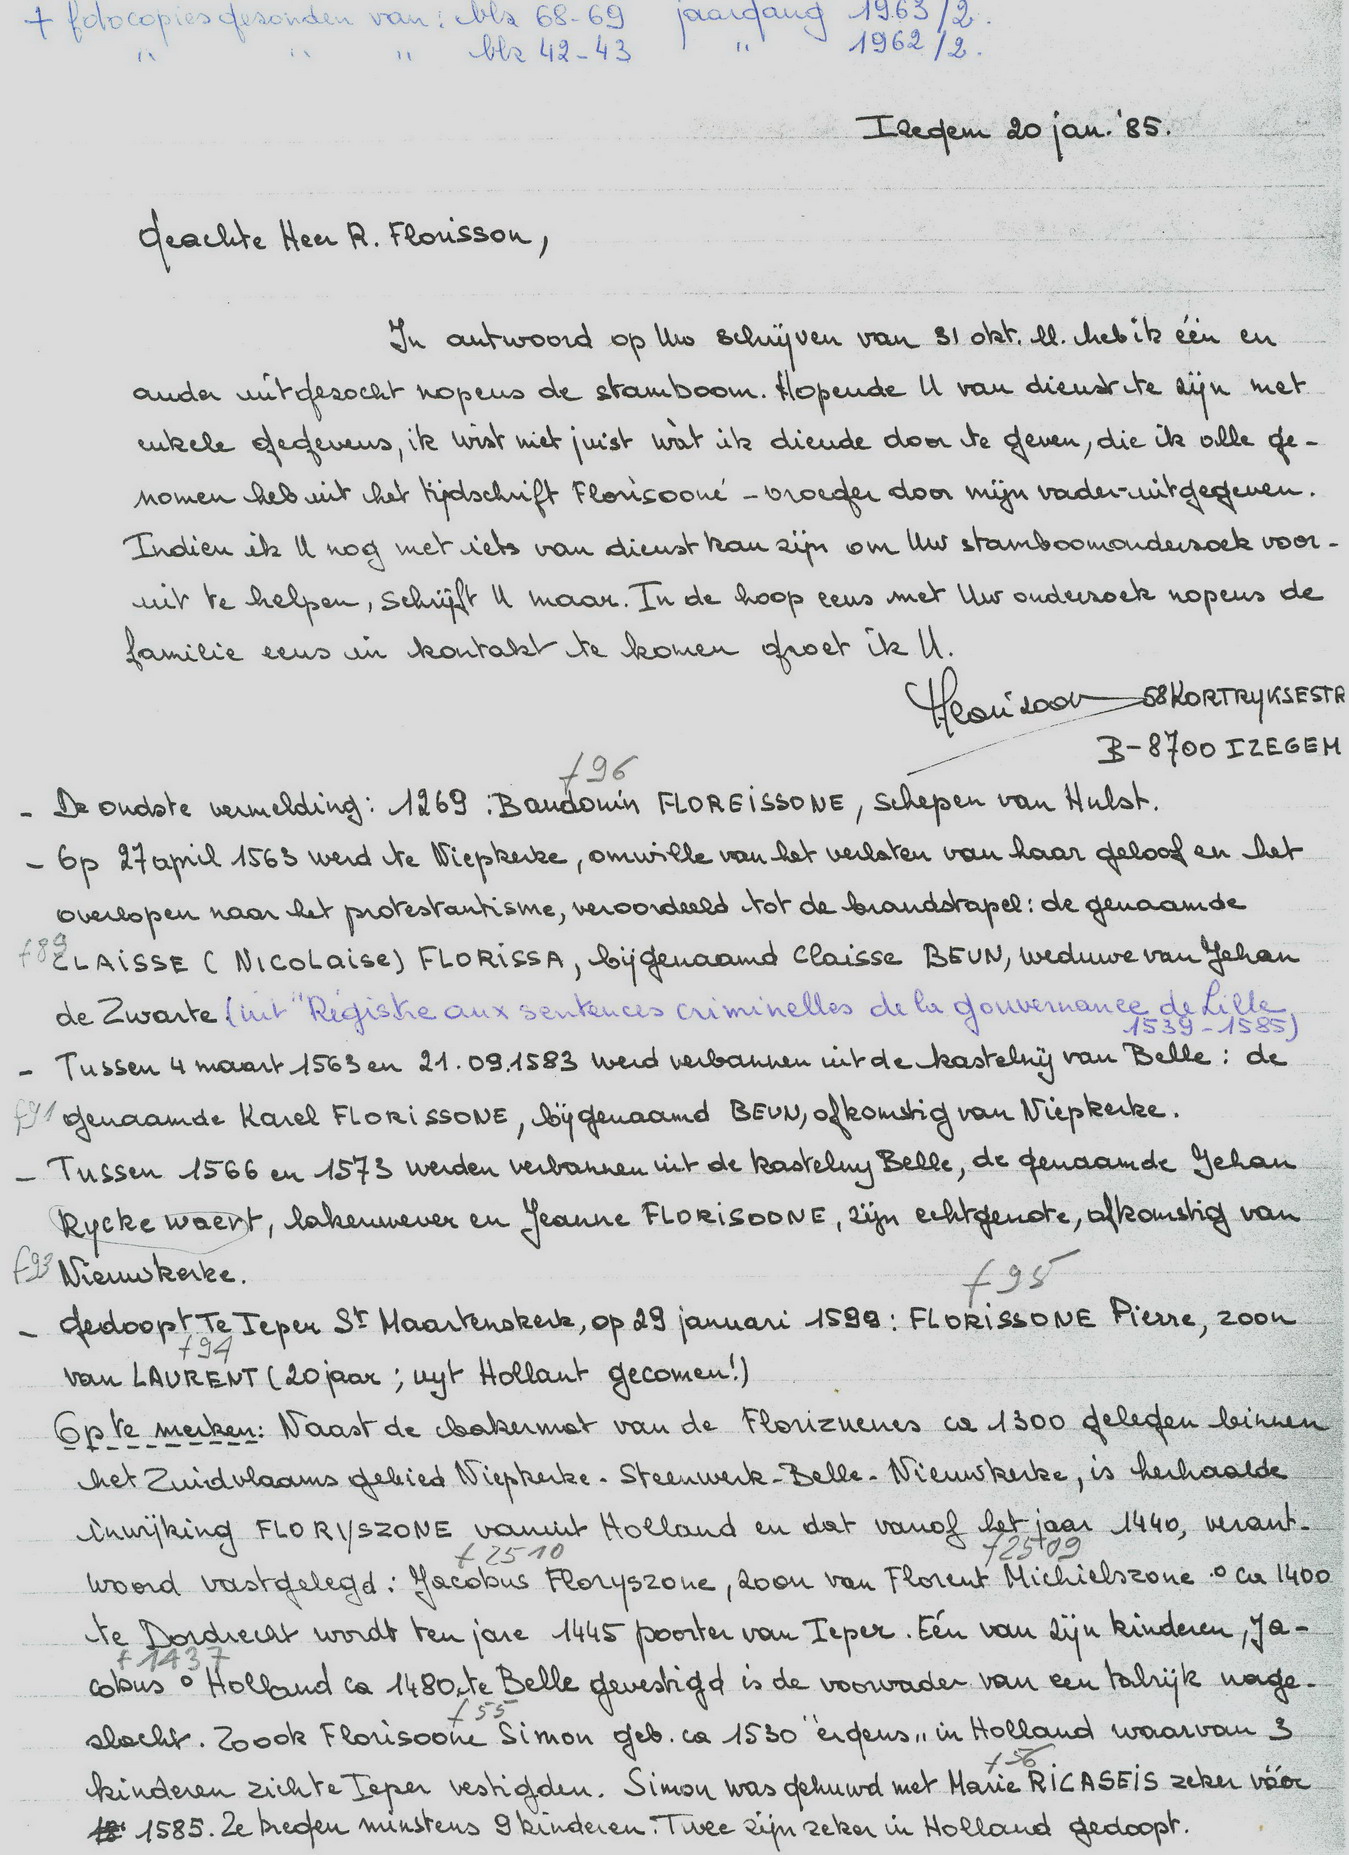 + fotocopies gezonden van: blz 68-69 jaargang 1963/2.
" " " blz 42-43 " 1962/2.
Izegem 20 jan. '85.
Geachte Heer R. Florisson,
In antwoord op Uw schrijven van 31 okt. ll. heb ik één en
ander uitgezocht nopens de stamboom. Hopende U van dienst te zijn met
enkele gegevens, ik wist niet juist wàt ik diende door te geven, die ik alle ge-
nomen heb uit het tijdschrift Florisooné - vroeger door mijn vader uitgegeven.
Indien ik U nog met iets van dienst kan zijn om Uw stamboomonderzoek voor-
uit te helpen, schrijft U maar. In de hoop eens met Uw onderzoek nopens de
familie eens in kontakt te komen groet ik U.
Florizoon 58 KORTRYKSESTR
B-8700 IZEGEM
f96
- De oudste vermelding: 1269 : Baudouin FLOREISSONE, schepen van Hulst.
- Op 27 april 1563 werd te Niepkerke, omwille van het verlaten van haar geloof en het
overlopen naar het protestantisme, veroordeeld tot de brandstapel: de genaamde
f89 CLAISSE (NICOLAISE) FLORISSA, bijgenaamd Claisse BEUN, weduwe van Jehan
de Zwarte (uit "Régistre aux sentences criminelles de la gouvernance de Lille
1539-1585)
- Tussen 4 maart 1563 en 21.09.1583 werd verbannen uit de kastelnij van Belle: de
f91 genaamde Karel FLORISSONE, bijgenaamd BEUN, afkomstig van Niepkerke.
- Tussen 1566 en 1573 werden verbannen uit de kastelny Belle, de genaamde Jehan
Rycke waert, lakenwever en Jeanne FLORISOONE, zijn echtgenote, afkomstig van
f93 Nieuwkerke.
f95
- Gedoopt Te Ieper St Maartenskerk, op 29 januari 1599: FLORISSONE Pierre, zoon
f94
van LAURENT (20 jaar; uyt Hollant gecomen!)
Op te merken: Naast de bakermat van de Floriznenes ca 1300 gelegen binnen
het Zuidvlaams gebied Niepkerke - Steenwerk - Belle - Nieuwkerke, is herhaalde
inwijking FLORYSZONE vanuit Holland en dat vanaf het jaar 1440, verant-
f2510 f2509
woord vastgelegd: Jacobus Floryszone, zoon van Florent Michielszone ° ca 1400
te Dordrecht wordt ten jare 1445 poorter van Ieper. Eén van zijn kinderen, Ja-
f1437
cobus ° Holland ca 1480, te Belle gevestigd is de voorvader van een talrijk nage-
f55
slacht. Zo ook Florisoone Simon geb. ca 1530 "ergens" in Holland waarvan 3
f56
kinderen zich te Ieper vestigden. Simon was gehuwd met Marie RICASEIS zeker vóór
1585. Ze kregen minstens 9 kinderen. Twee zijn zeker in Holland gedoopt.